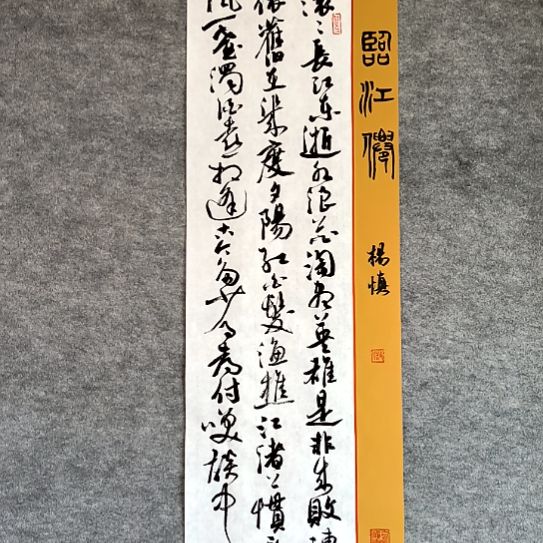 臨江僊
楊慎
滾〻長江東逝水浪花淘盡英雄是非成敗轉
依舊在幾度夕陽紅白髮漁樵江渚上慣
風一壺濁酒喜相逢古今多少事都付笑談中